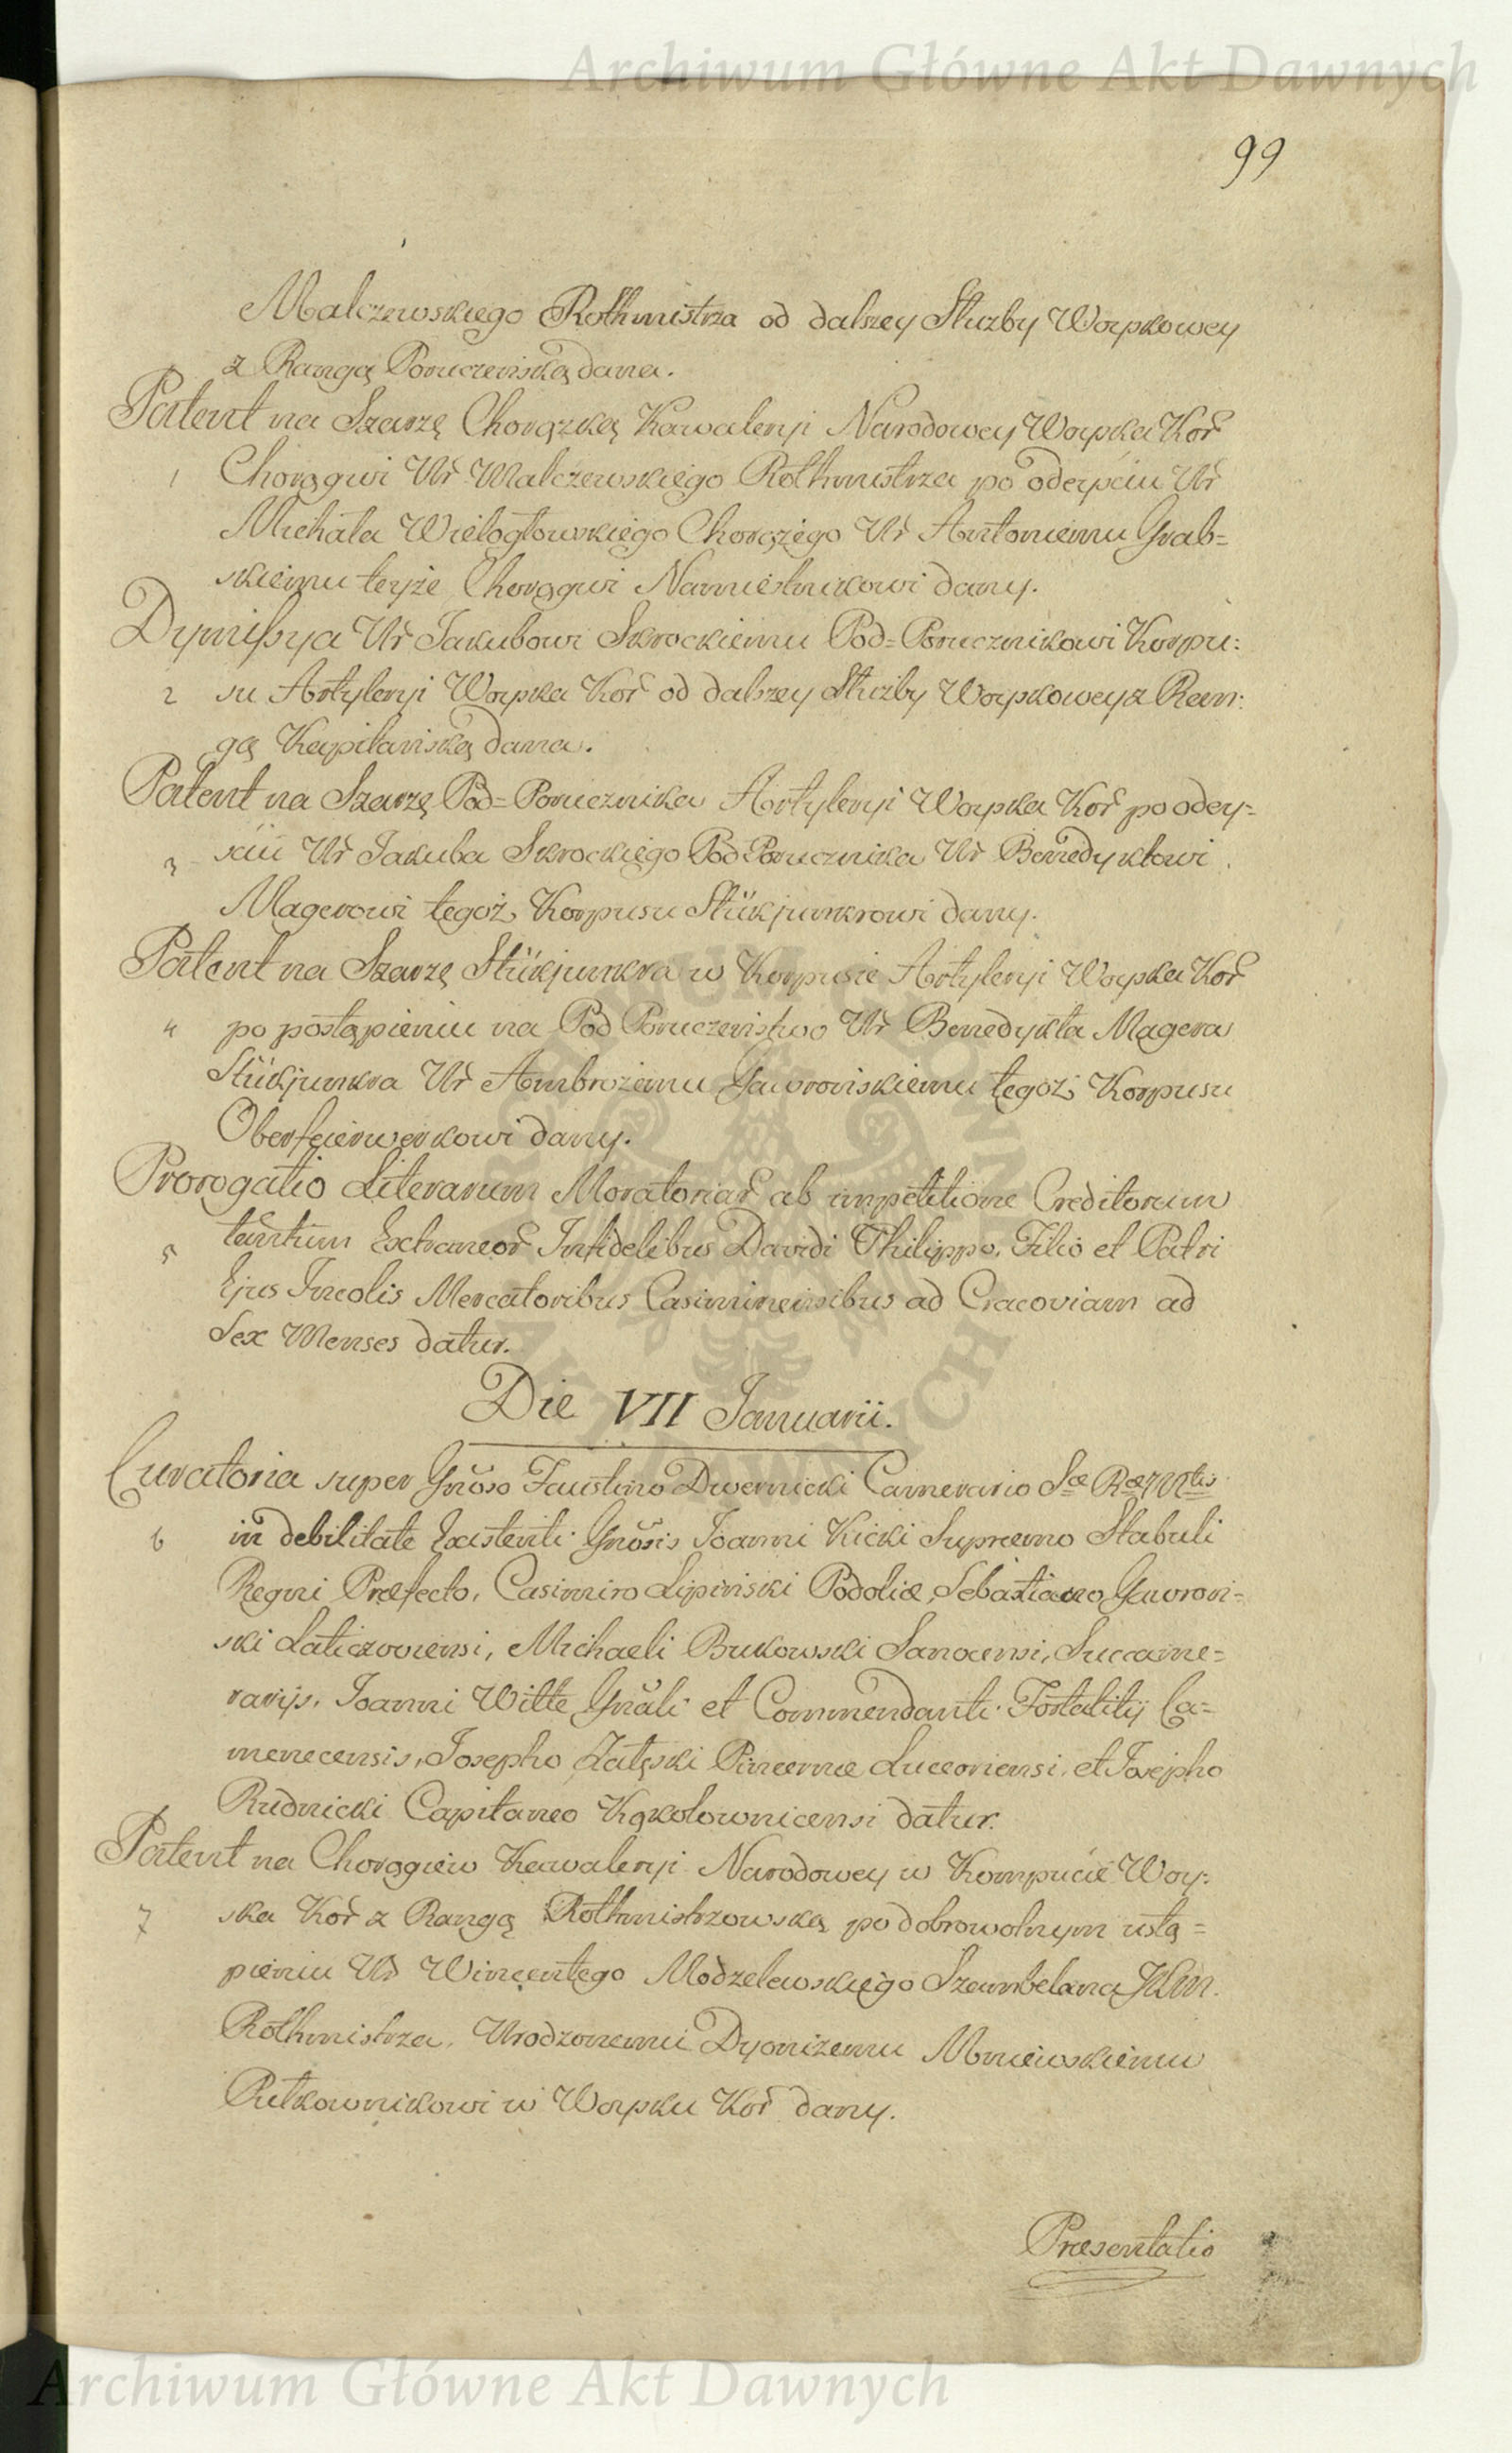 Archiwum Główne Akt Dawnych
99
Malczewskiego Rothmistrza od dalszey Służby Woyskowey
z Rangą Poruczeńską dana.
Patent na Szarzę Chorązką Kawaleryi Narodowey Woyska Koř
1 Chorągwi Uř Malczewskiego Rothmistrza po odeyściu Uř
Michała Wielogłowskiego Chorążego Uř Antoniemu Grab=
skiemu teyże Chorągwi Namiestnikowi dany.
Dymissya Uř Jakubowi Skrockiemu Pod=Porucznikowi Korpu:
2 su Artyleryi Woyska Koř od dalszey Służby Woyskowey z Ran:
gą Kapitańską dana.
Patent na Szarzę Pod=Porucznika Artyleryi Woyska Koř po odey=
3 sciu Uř Jakuba Skrockiego Pod Porucznika Uř Benedyktowi
Magerowi tegoż Korpusu Stükjunkrowi dany.
Patent na Szarzę Stükjunkra w Korpusie Artyleryi Woyska Koř
4 po postąpieniu na Pod Poruczeństwo Uř Benedykta Magera
Stükjunkra Uř Ambrożemu Gawrońskiemu tegoż Korpusu
Oberfeierwerkowi dany.
Prorogatio Literarum Moratoriař ab impetitione Creditorum
5 tantum Extraneoř Infidelibus Davidi Philippo, Filio et Patri
Ejus Incolis Mercatoribus Casimiriensibus ad Cracoviam ad
Sex Menses datur.
Die VII Januarii.
Curatoria super Gnõso Faustino Dwernicki Camerario Sæ Ræ Mtis
6 in debilitate Existenti Gnõsis Joanni Kicki Supremo Stabuli
Regni Præfecto, Casimiro Lipiński Podoliæ, Sebastiano Gawroń=
ski Laticzoviensi, Michaeli Bukowski Sanocensi, Succame=
rarijs, Joanni Witte Gnãli et Commendanti Fortalitij Ca=
menecensis, Josepho Załęski Pincernæ Luceoriensi, et Josepho
Rudnicki Capitaneo Kąkolownicensi datur.
Patent na Chorągiew Kawaleryi Narodowey w Kompucie Woy:
7 ska Koř z Rangą Rothmistrzowską po dobrowolnym ustą=
pieniu Uř Wincentego Modzelewskiego Szambelana JKm.
Rothmistrza, Urodzonemu Dyonizemu Mniewskiemu
Pułkownikowi w Woysku Koř dany.
Præsentatio
Archiwum Główne Akt Dawnych